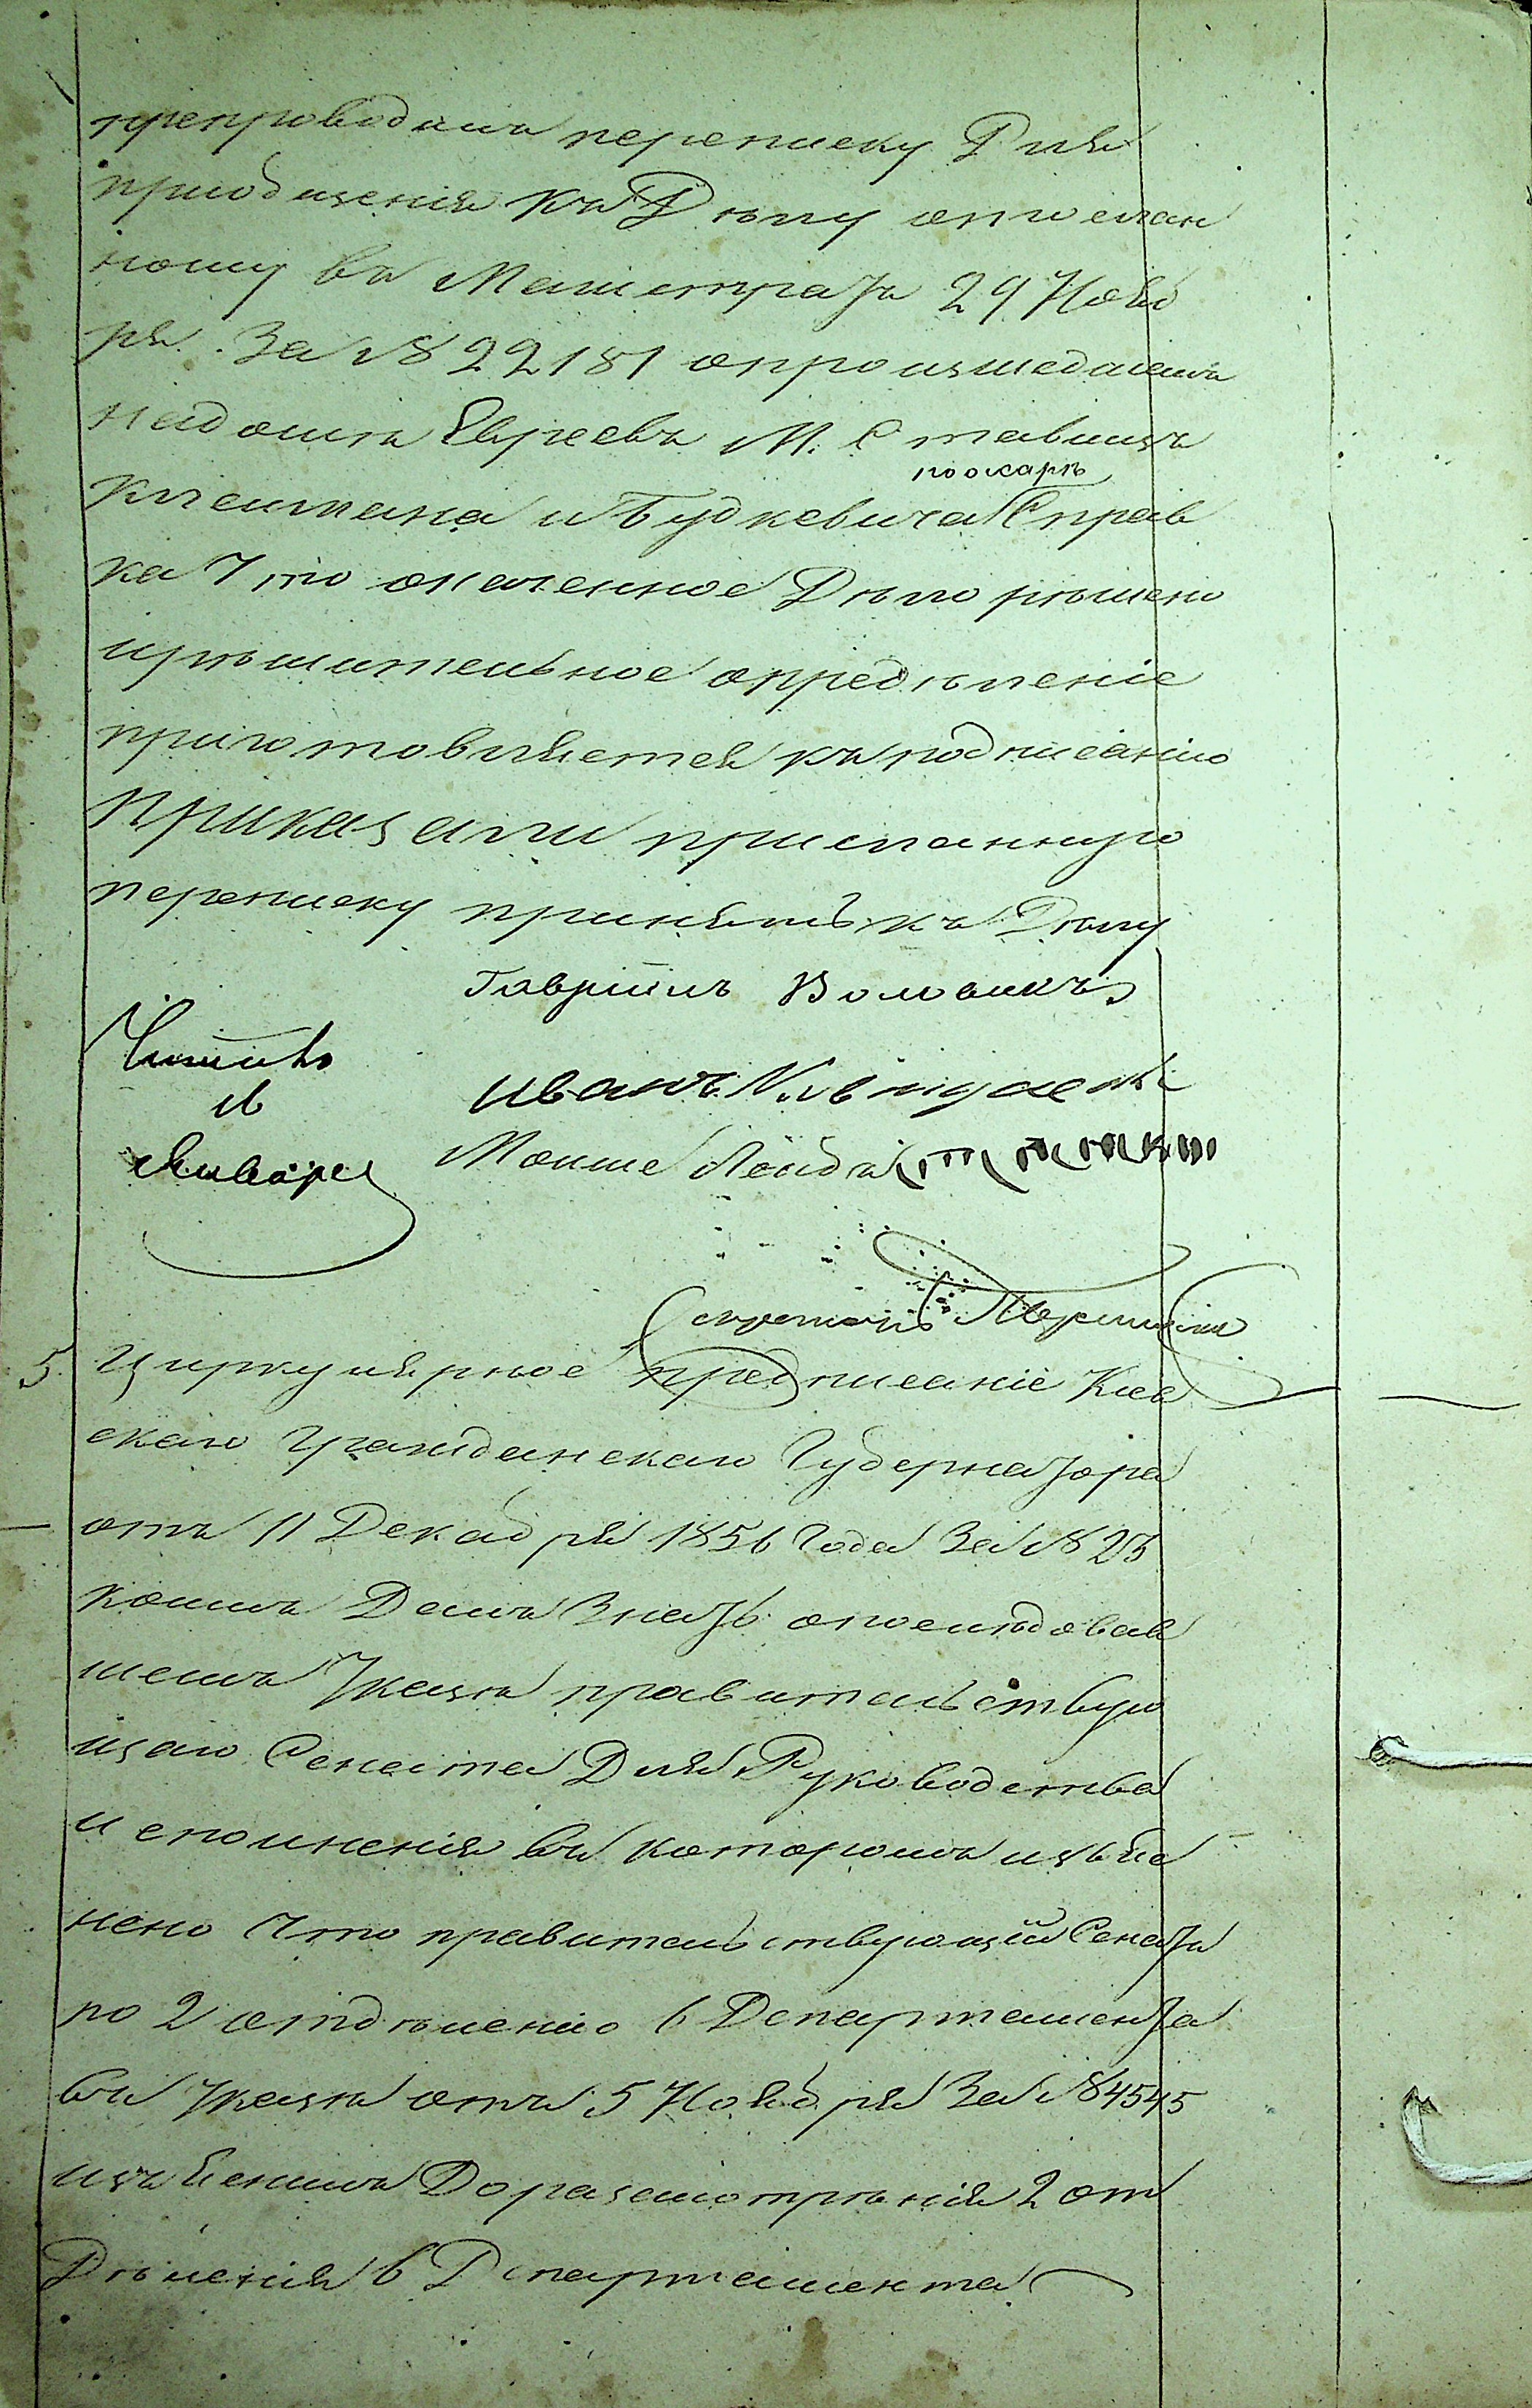 препроводила переписку Для
приобщенія къ Дѣлу отослан
ному въ Магистратъ 29 Нояб
ря за № 22181 опроизшедшемъ
надомѣ Евреевъ М. Ставищъ
пожарѣ
Клеймана и Будкевича Справ
ка Что означенное Дѣло рѣшено
ирѣшительное опредѣленіе
приготовляется къ подписанію
Приказали присланную
переписку принять къ Дѣлу
Гавріилъ
Читалъ
Иванъ
Января
Мошко
Секретарь
5. Циркулярное предписаніе Кіев
скаго Гражданскаго Губернатора
отъ 11 Декабря 1856 Года За № 23
коимъ Далъ Знать опослѣдовав
шемъ Указѣ правительствую
щаго Сената Для Руководства
исполненія въ которомъ изъяс
нено Что правительствующій Сенатъ
по 2 отдѣленію 6 Департамента
въ Указѣ отъ 5 Ноября За № 4545
изъяснилъ Доразсмотрѣнія 2 от
Дѣленія 6 Департамента